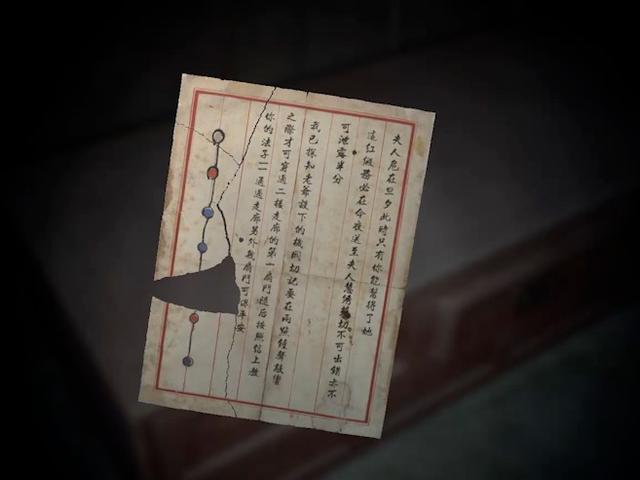 夫人危在旦夕此時只有你能幫得了她
這紅器必在今夜送至夫人切不可出錯亦不
可泄露半分
我已探知老爺設下的機関切記要在兩點鐘聲敲響
之際才可穿過二樓走廊的第一扇門隨后按照信上教
你的法子一一通過走廊另外幾扇門可保平安